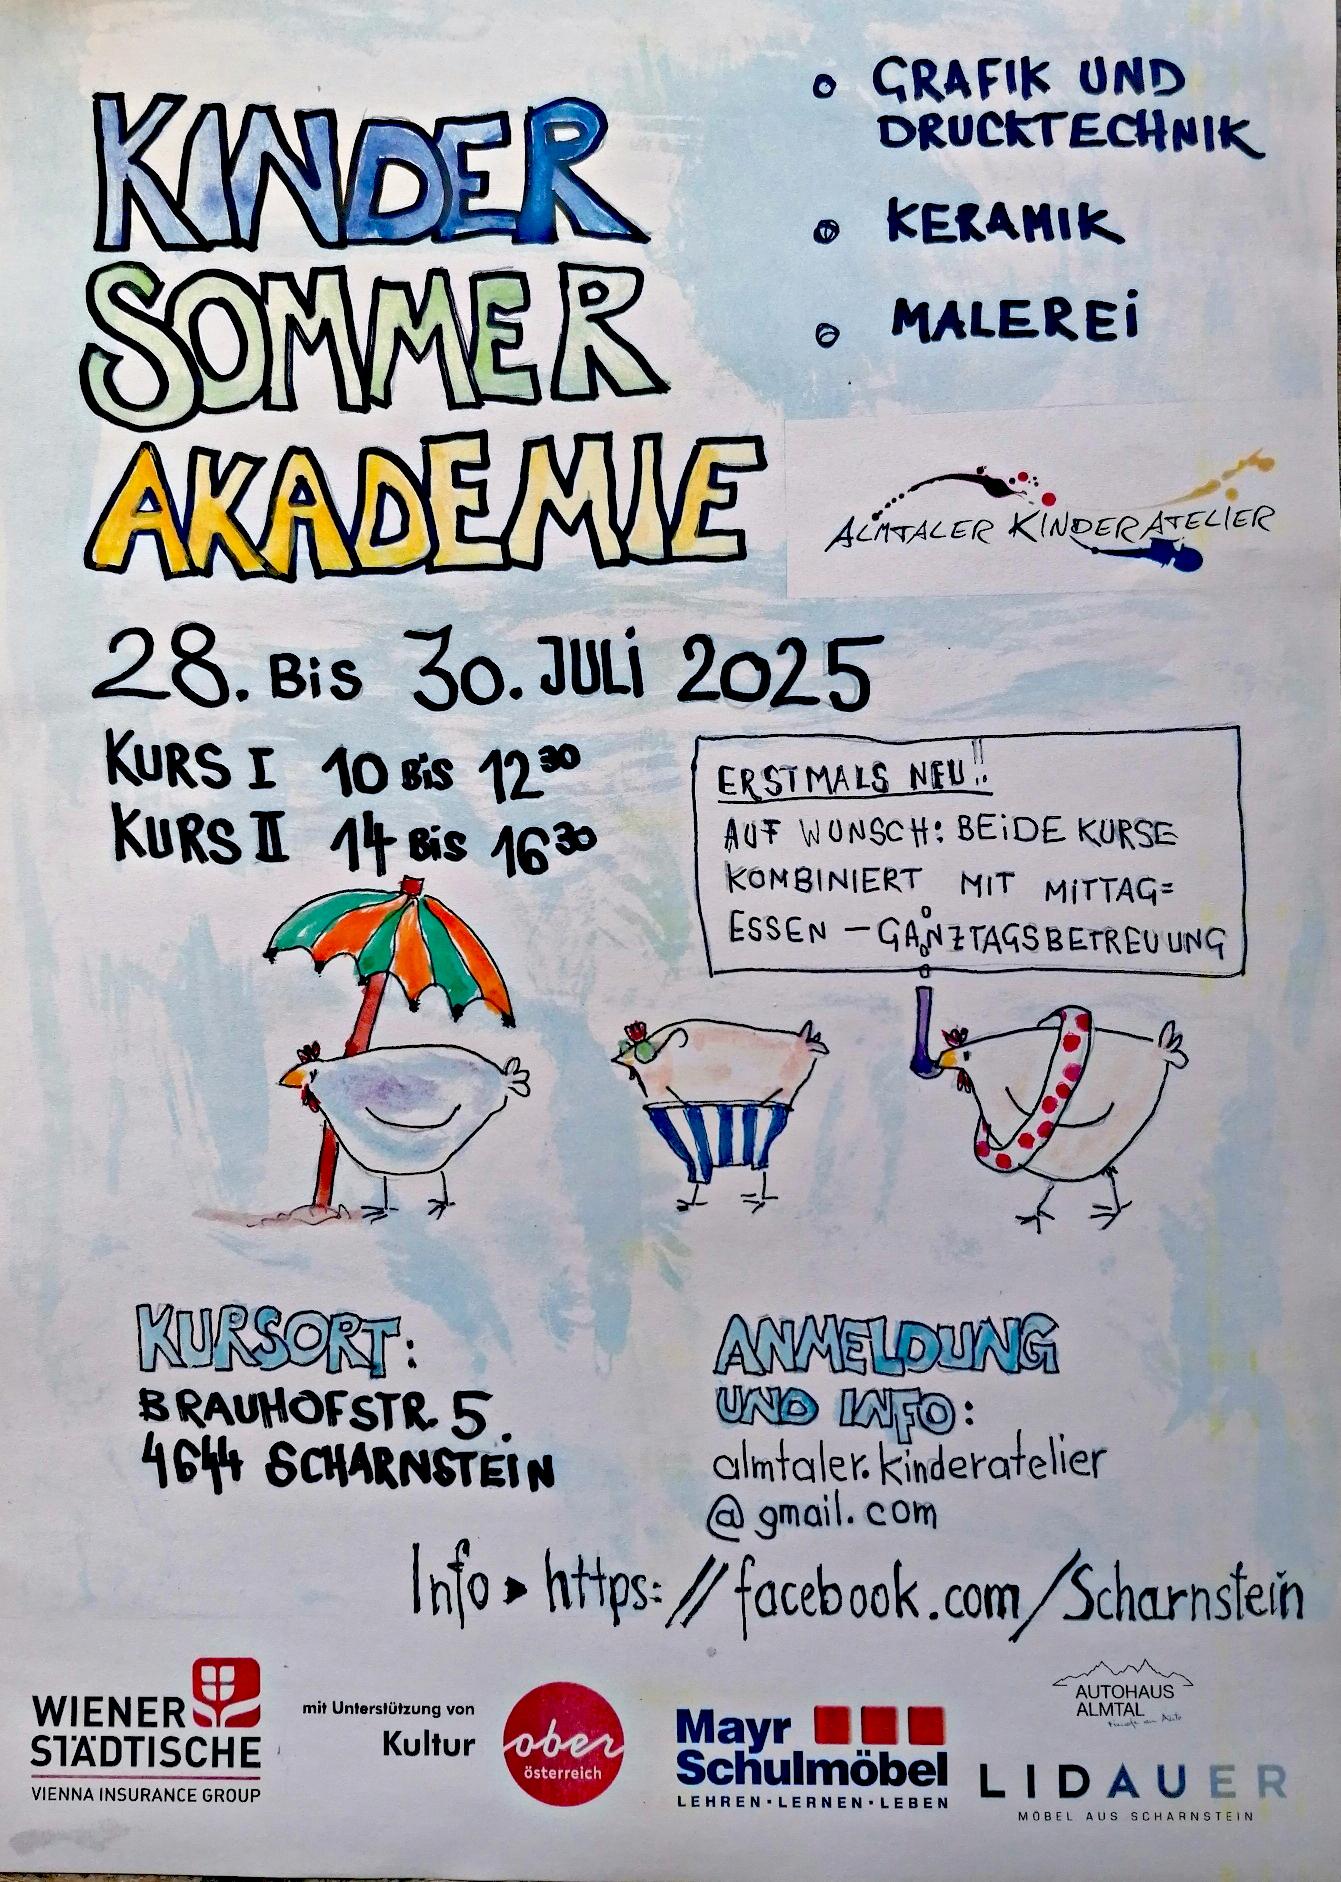 KINDER
SOMMER
AKADEMIE
GRAFIK UND
DRUCKTECHNIK
KERAMIK
MALEREI
ALMTALER KINDERATELIER
28. BIS 30. JULI 2025
KURS I 10 BIS 12³⁰
KURS II 14 BIS 16³⁰
ERSTMALS NEU!!
AUF WUNSCH: BEIDE KURSE
KOMBINIERT MIT MITTAG=
ESSEN – GANZTAGSBETREUUNG
KURSORT:
BRAUHOFSTR. 5.
4644 SCHARNSTEIN
ANMELDUNG
UND INFO:
almtaler.kinderatelier
@gmail.com
Info ▸ https://facebook.com/Scharnstein
WIENER
STÄDTISCHE
VIENNA INSURANCE GROUP
mit Unterstützung von
Kultur
ober
österreich
Mayr
Schulmöbel
LEHREN·LERNEN·LEBEN
AUTOHAUS
ALMTAL
LIDAUER
MÖBEL AUS SCHARNSTEIN